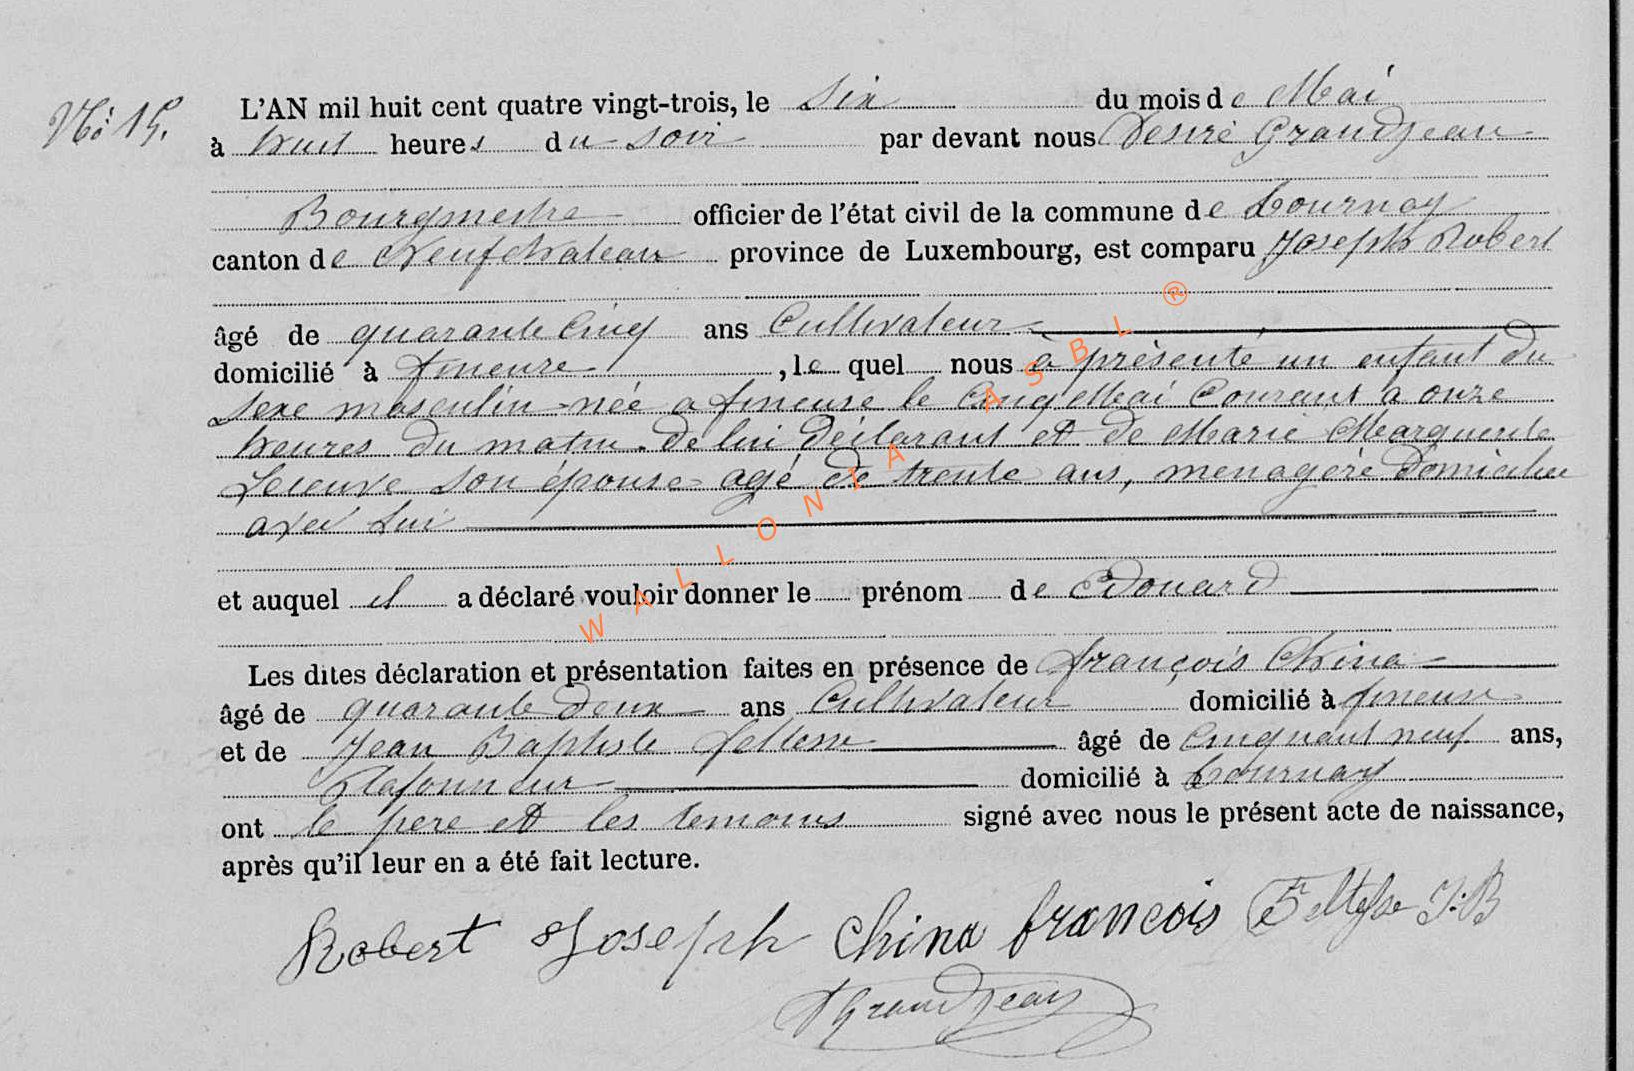 No. 15.
L'AN mil huit cent quatre vingt-trois, le six du mois de Mai
à huit heures du soir par devant nous Desiré Grandjean
Bourgmestre officier de l'état civil de la commune de Tournay
canton de Neufchateau province de Luxembourg, est comparu Joseph Robert
âgé de quarante cinq ans Cultivateur
domicilié à fineuse, le quel nous à présenté un enfant du
sexe masculin née a fineuse le cinq Mai Courant a onze
heures du matin. de lui déclarant et de Marie Marguerite
son épouse agé de trente ans, menagère domiciliee
avec lui
et auquel il a déclaré vouloir donner le prénom de Edouard
Les dites déclaration et présentation faites en présence de françois China
âgé de quarante deux ans Cultivateur domicilié à fineuse
et de Jean Baptiste âgé de cinquant neuf ans,
Plafonneur domicilié à Tournay
ont le pere et les temoins signé avec nous le présent acte de naissance,
après qu'il leur en a été fait lecture.
Robert Joseph China francois J.B
DGrandjean
WALLONIA ASBL ®